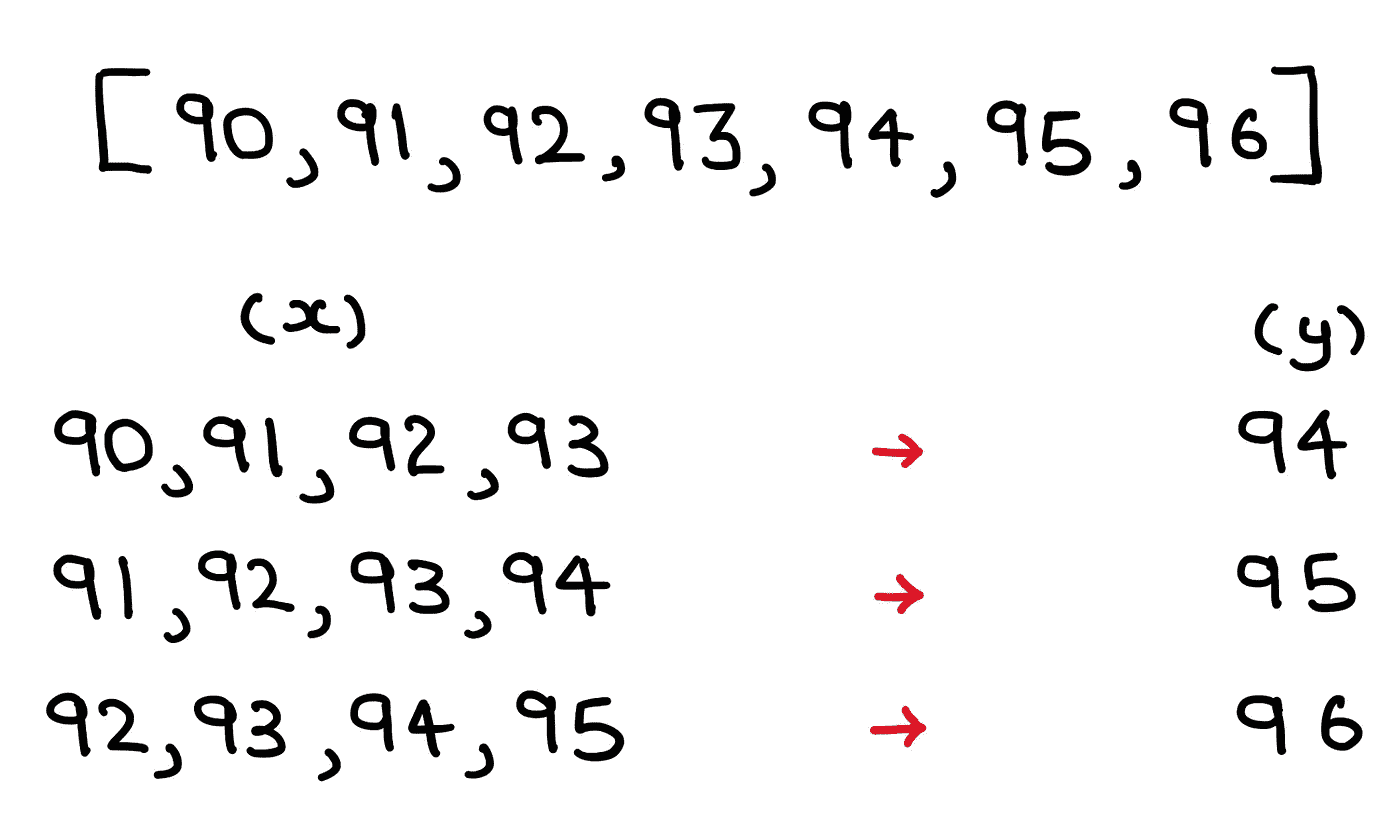 [90, 91, 92, 93, 94, 95, 96]
(x) (y)
90, 91, 92, 93 → 94
91, 92, 93, 94 → 95
92, 93, 94, 95 → 96